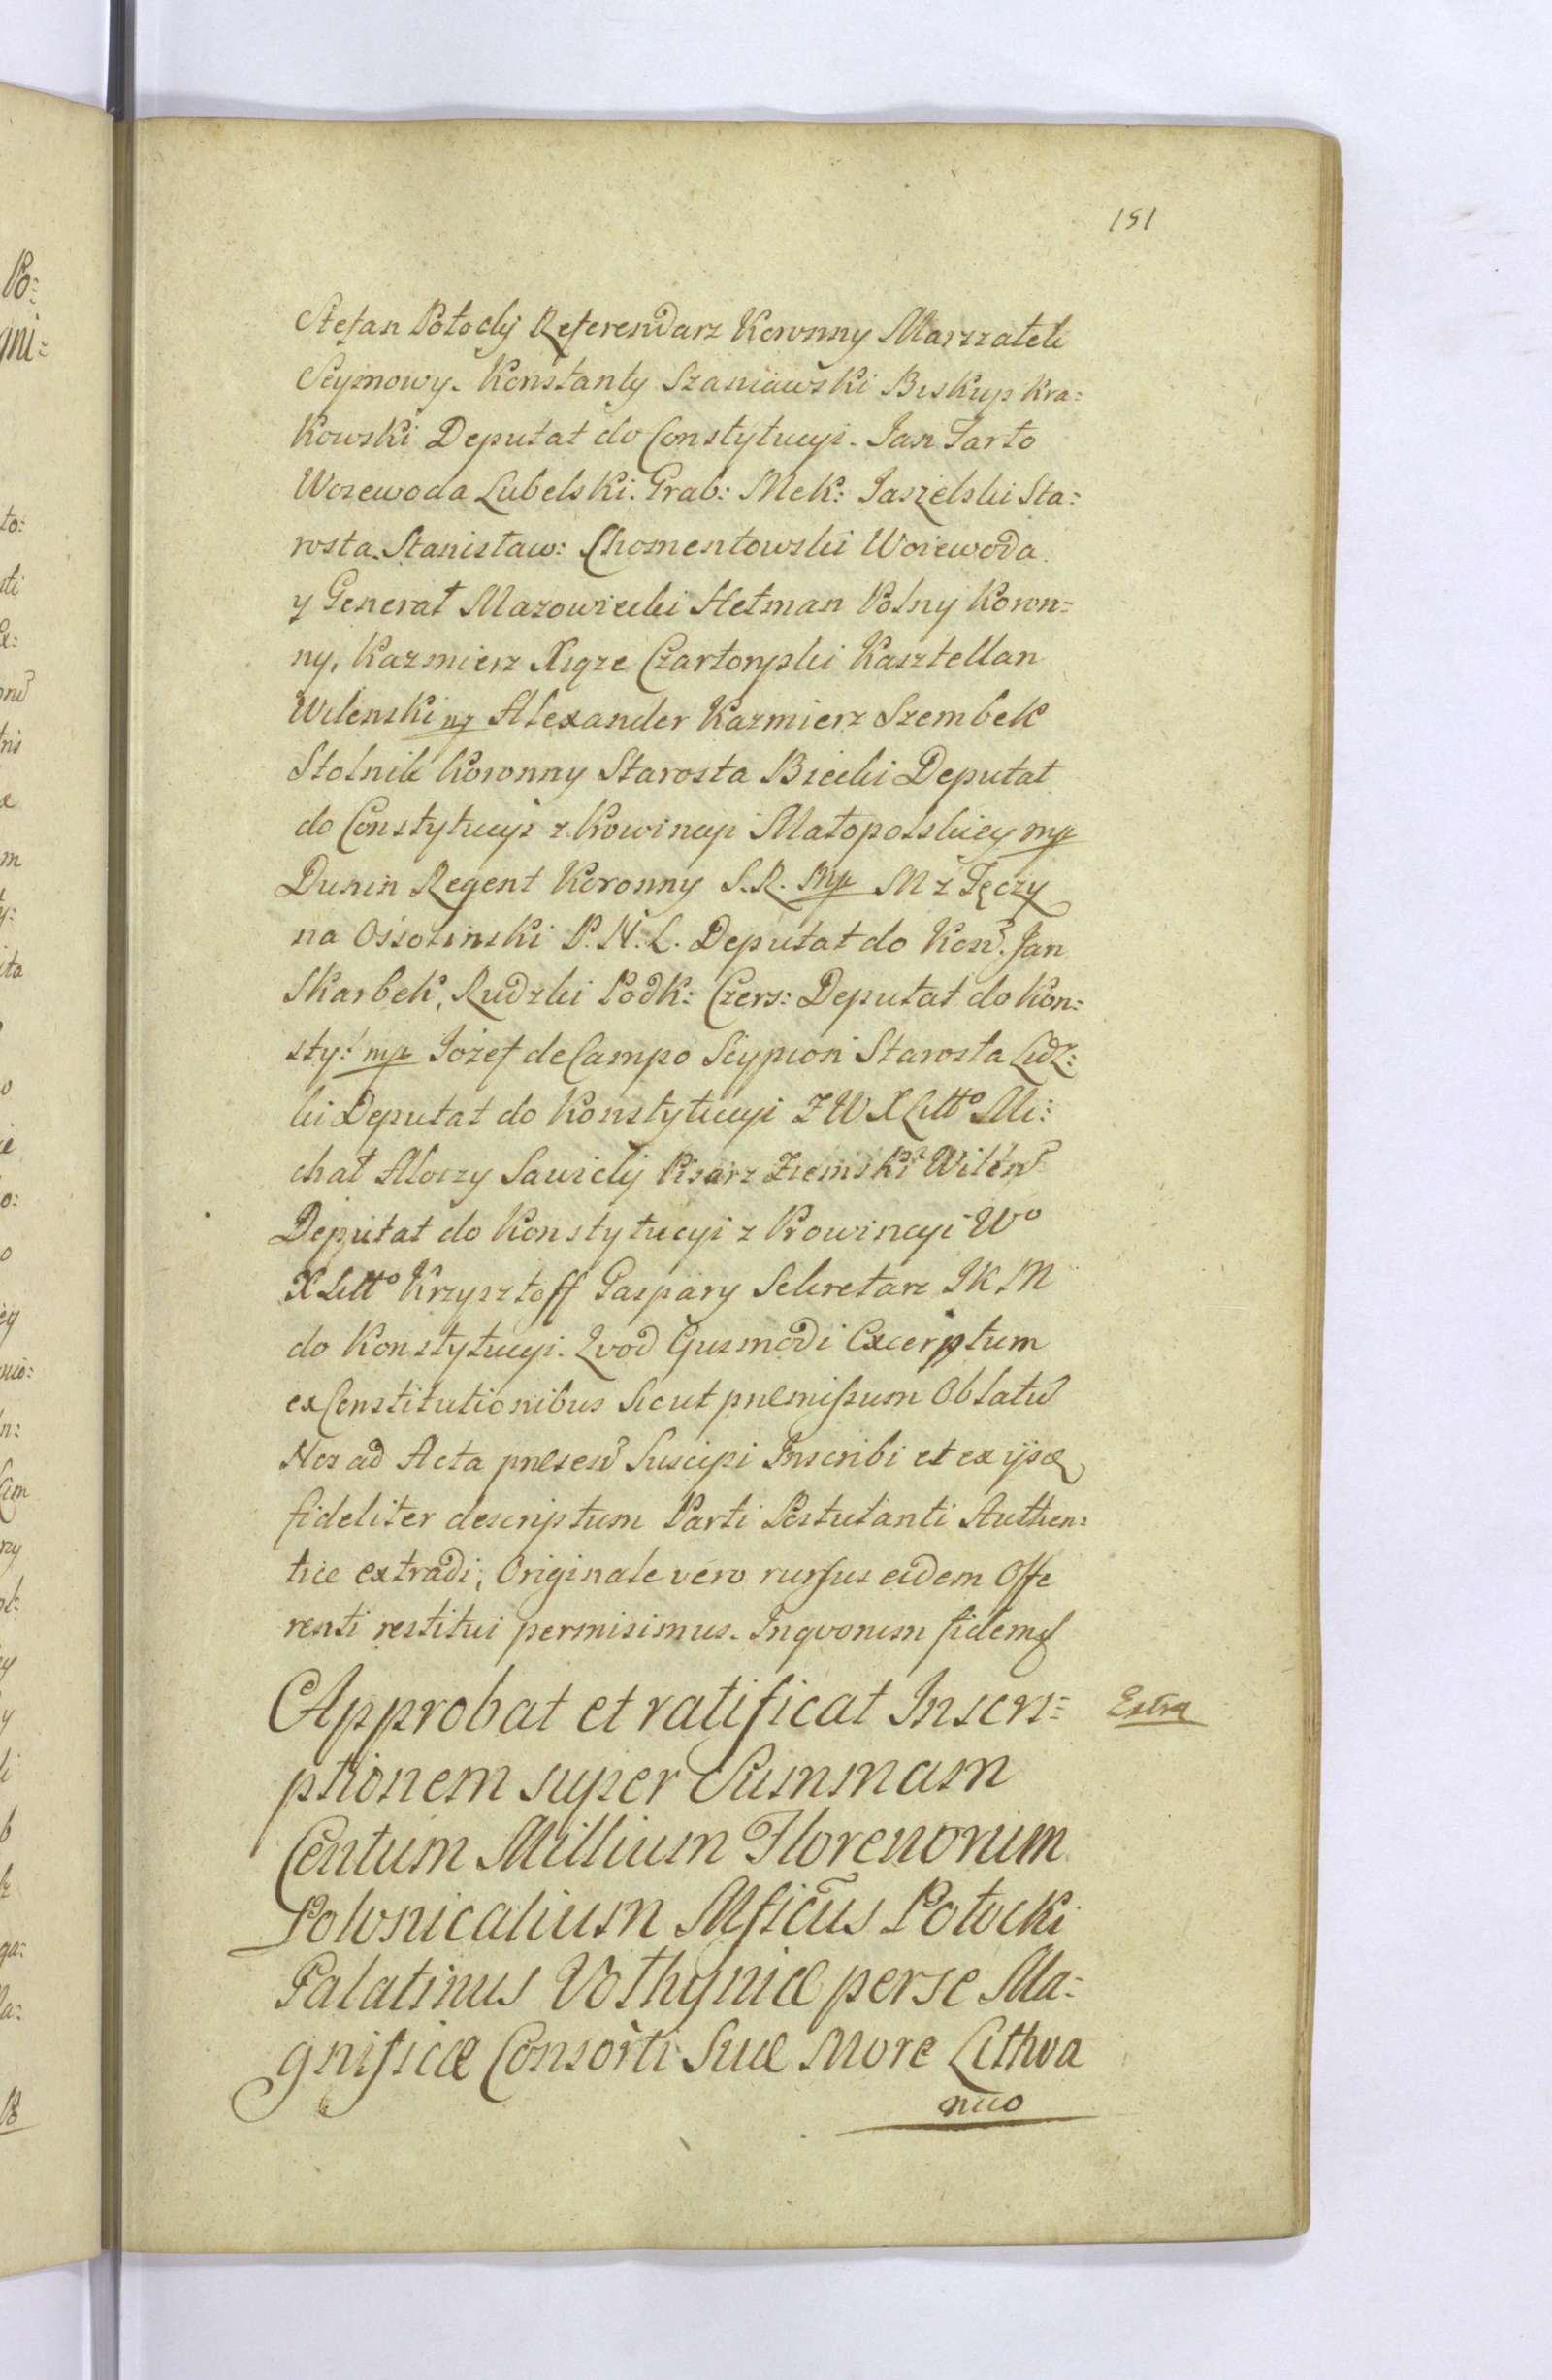 151
Stefan Potocky Referendarz Koronny Marszałek
Seymowy. Konstanty Szaniawski Biskup Kra=
kowski Deputat do Constytucyi. Jan Tarło
Woiewoda Lubelski. Grab: Mek: Jaszelski Sta=
rosta. Stanisław: Chomentowski Woiewoda
y Generał Mazowiecki Hetman Polny Koron=
ny, Kazmierz Xiąze Czartoryski Kasztellan
Wilenski mp Alexander Kazmierz Szembek
Stolnik Koronny Starosta Biecki Deputat
do Constytucyi z Prowincyi Małopolskiey mp
Dunin Regent Koronny S.R. mp M z Tęczy
na Ossolinski P. N. L. Deputat do Kons. Jan
Skarbek, Rudzki Podk: Czers: Deputat do Kon=
sty: mp Jozef de Campo Scypion Starosta Lidz=
ki Deputat do Konstytucyi Z W X Litto Mi=
chał Aloizy Sawicky Pisarz Ziemski Wilens
Deputat do Konstytucyi z Prowincyi Wo
X Litto Krzysztoff Gaspary Sekretarz J K M
do Konstytucyi. Qvod Ejusmodi Excerptum
ex Constitutionibus Sicut præmissum Oblatum
Nos ad Acta præsen Suscipi Inscribi et ex ijsd
fideliter descriptum Parti Postulanti Authen=
tice extradi, Originale vero rursus eidem Offe
renti restitui permisimus. In qvorum fidem
Approbat et ratificat Inscri=
ptionem super Summam
Centum Millium Florenorum
Polonicalium Mficus Potocki
Palatinus Volhyniæ per se Ma=
gnificæ Consorti Suæ More Lithva
nico
Extra